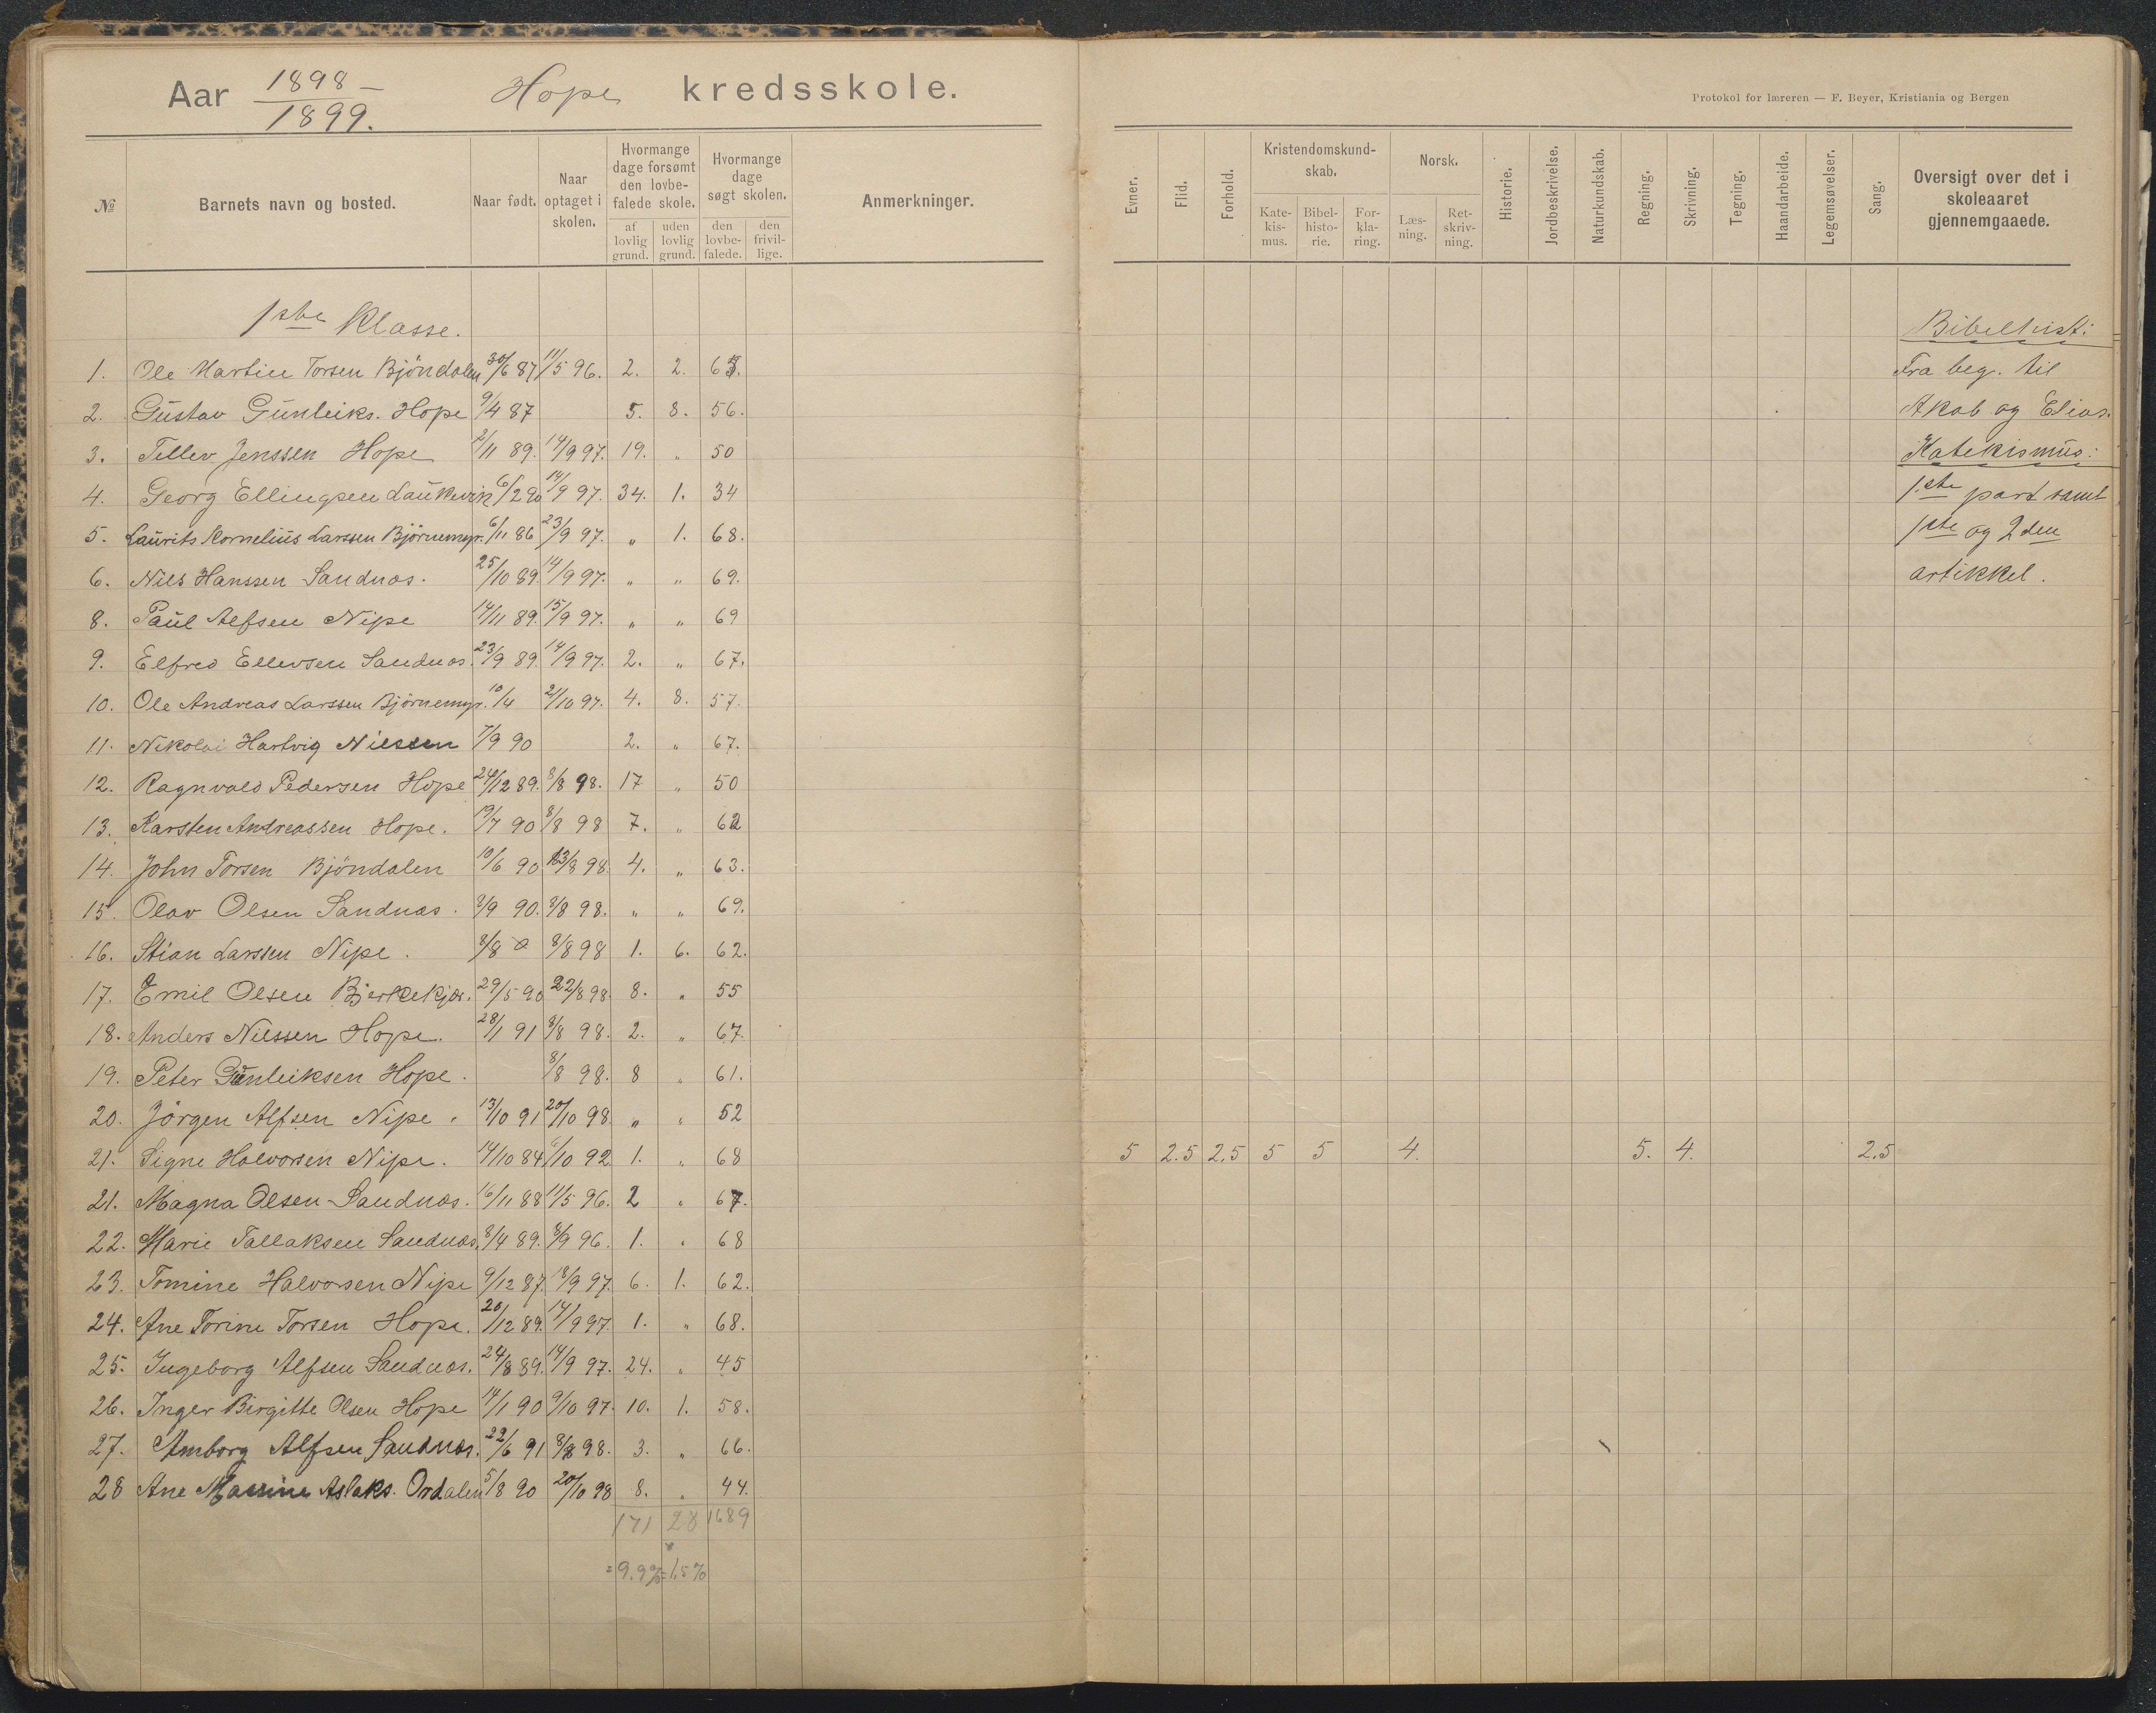 Aar 1898–1899. Hope kredsskole.
Protokol for læreren — F. Beyer, Kristiania og Bergen
№ | Barnets navn og bosted. | Naar født. | Naar optaget i skolen. | Hvormange dage forsømt den lovbefalede skole. af lovlig grund. | uden lovlig grund. | Hvormange dage søgt skolen. den lovbefalede. | den frivillige. | Anmerkninger.
Evner. | Flid. | Forhold. | Kristendomskundskab. Katekismus. | Bibelhistorie. | Forklaring. | Norsk. Læsning. | Retskrivning. | Historie. | Jordbeskrivelse. | Naturkundskab. | Regning. | Skrivning. | Tegning. | Haandarbeide. | Legemsøvelser. | Sang. | Oversigt over det i skoleaaret gjennemgaaede.
1ste Klasse.
1. Ole Martin Torsen Bjöndalen 30/6 87 11/5 96. 2. 2. 65.
2. Gustav Gunleiks. Hope 9/4 87 5. 8. 56.
3. Tellev Jenssen Hope 2/11 89. 14/9 97. 19. " 50
4. Georg Ellingsen Laukevik 6/2 90 14/9 97. 34. 1. 34
5. Laurits Kornelius Larssen Björnemyr. 6/11 86 23/9 97. " 1. 68.
6. Nils Hanssen Sandnæs. 25/10 89 14/9 97. " " 69.
8. Paul Alfsen Nipe 14/11 89. 15/9 97. " " 69
9. Elfred Ellevsen Sandnæs. 23/9 89. 14/9 97. 2. " 67.
10. Ole Andreas Larssen Björnemyr. 10/4 21/10 97. 4. 8. 57.
11. Nikolai Hartvig Nielsen 7/9 90 2. " 67.
12. Ragnvald Pedersen Hope 24/12 89. 8/8 98. 17 " 50
13. Karsten Andreassen Hope. 19/7 90 8/8 98 7. " 62
14. John Torsen Bjöndalen 10/6 90 23/8 98. 4. " 63.
15. Olav Olsen Sandnæs. 2/9 90. 8/8 98. " " 69.
16. Stian Larssen Nipe. 8/8 8/8 98 1. 6. 62.
17. Emil Olsen Bjerkekjær. 29/5 90 22/8 98. 8. " 55
18. Anders Nilssen Hope. 28/1 91 8/8 98. 2. " 67.
19. Peter Gunleiksen Hope. 8/8 98. 8 " 61.
20. Jörgen Alfsen Nipe. 13/10 91 20/10 98 " " 52
21. Signe Halvorsen Nipe. 14/10 84 /10 92 1. " 68 5 2.5 2,5 5 5 4. 5. 4. 2.5
21. Magna Olsen Sandnæs. 16/11 88 11/5 96. 2 " 67.
22. Marie Tallaksen Sandnæs. 8/4 89. 8/9 96. 1. " 68
23. Tomine Halvorsen Nipe 9/12 87. 18/9 97. 6. 1. 62.
24. Ane Torine Torsen Hope. 20/12 89. 14/9 97. 1. " 68.
25. Ingeborg Alfsen Sandnæs. 24/8 89. 14/9 97. 24. " 45
26. Inger Birgitte Olsen Hope 14/1 90 9/10 97. 10. 1. 58.
27. Amborg Alfsen Sandnæs. 22/6 91 8/8 98. 3. " 66.
28 Ane Massine Aslaks. Ordalen 5/8 90 20/10 98 8. " 44.
171 28 1689
= 9.9% = 1.5%
Bibelhist:
Fra beg. til
Akab og Elias.
Katekismus:
1ste part samt
1ste og 2den
artikkel.